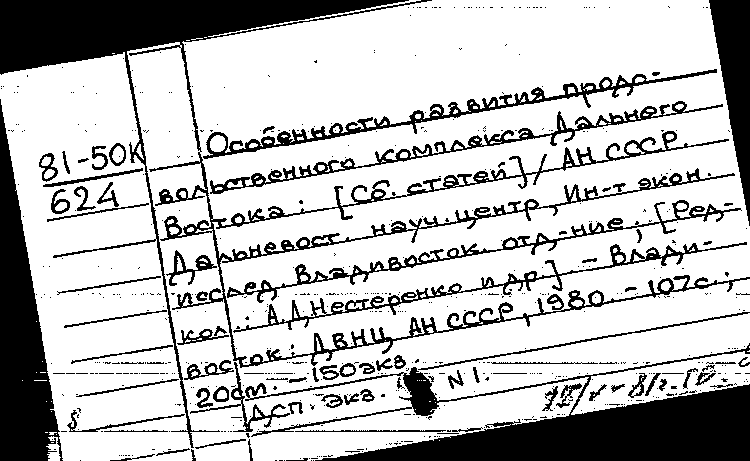 81-50К
624
Особенности развития продо-
вольственного комплекса Дальнего
Востока: [Сб. статей] / АН СССР.
Дальневост. науч. центр, Ин-т экон.
исслед. Владивосток. отд-ние; [Ред-
кол.: А.Д. Нестеренко и др.] – Влади-
восток: ДВНЦ АН СССР, 1980. – 107с.;
20см. – 150экз.
Дсп. экз. N 1.